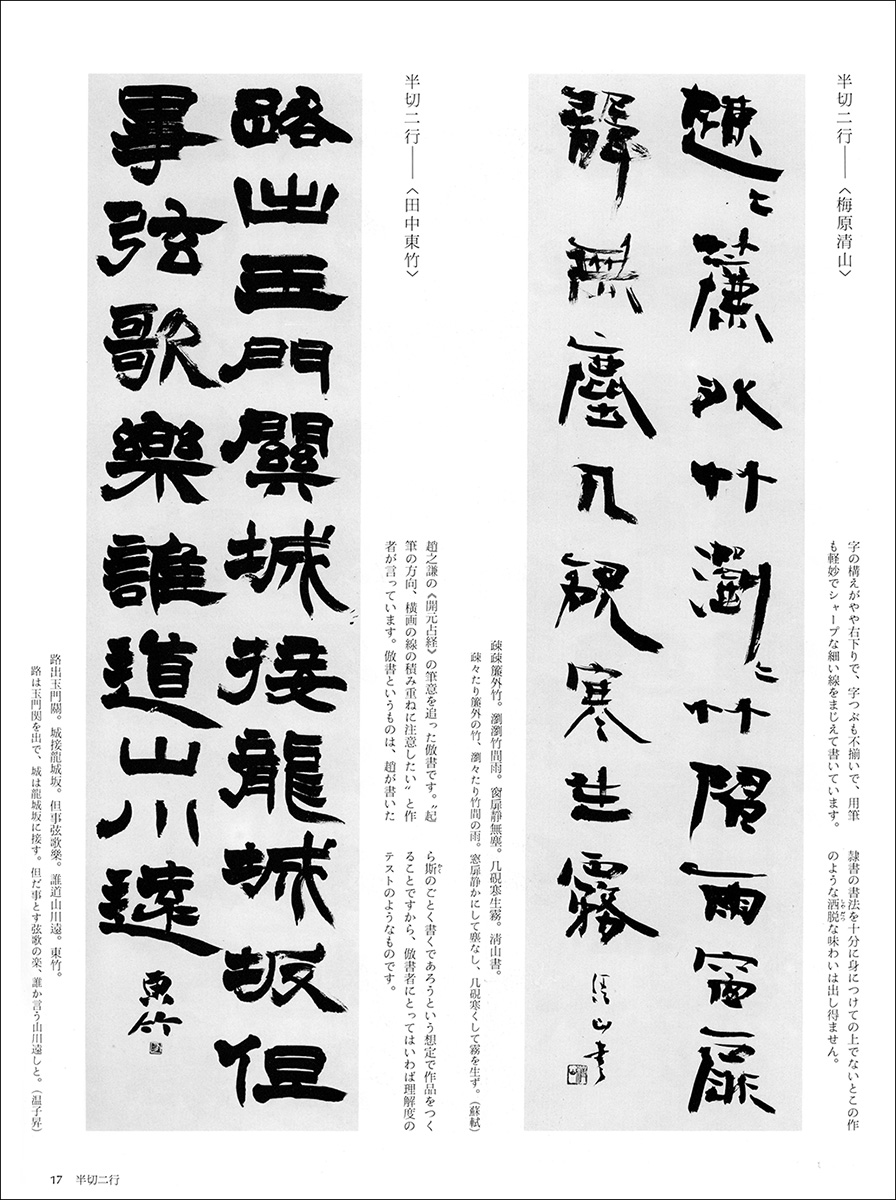 半切二行――〈梅原清山〉
疎〻簾外竹瀏〻竹間雨窗扉
静無塵几硯寒生霧 清山書
字の構えがやや右下りで、字つぶも不揃いで、用筆
も軽妙でシャープな細い線をまじえて書いています。
隷書の書法を十分に身につけての上でないとこの作
のような洒脱な味わいは出し得ません。
しゃだつ
疎疎簾外竹。瀏瀏竹間雨。窗扉静無塵。几硯寒生霧。清山書。
疎々たり簾外の竹、瀏々たり竹間の雨。窓扉静かにして塵なし、几硯寒くして霧を生ず。(蘇軾)
半切二行――〈田中東竹〉
路出玉門關城接龍城坂但
事弦歌樂誰道山川遠 東竹
趙之謙の《開元占経》の筆意を追った倣書です。〝起
筆の方向、横画の線の積み重ねに注意したい〟と作
者が言っています。倣書というものは、趙が書いた
ら斯のごとく書くであろうという想定で作品をつく
かく
ることですから、倣書者にとってはいわば理解度の
テストのようなものです。
路出玉門關。城接龍城坂。但事弦歌樂。誰道山川遠。東竹。
路は玉門関を出で、城は龍城坂に接す。但だ事とす弦歌の楽、誰か言う山川遠しと。(温子昇)
17 半切二行